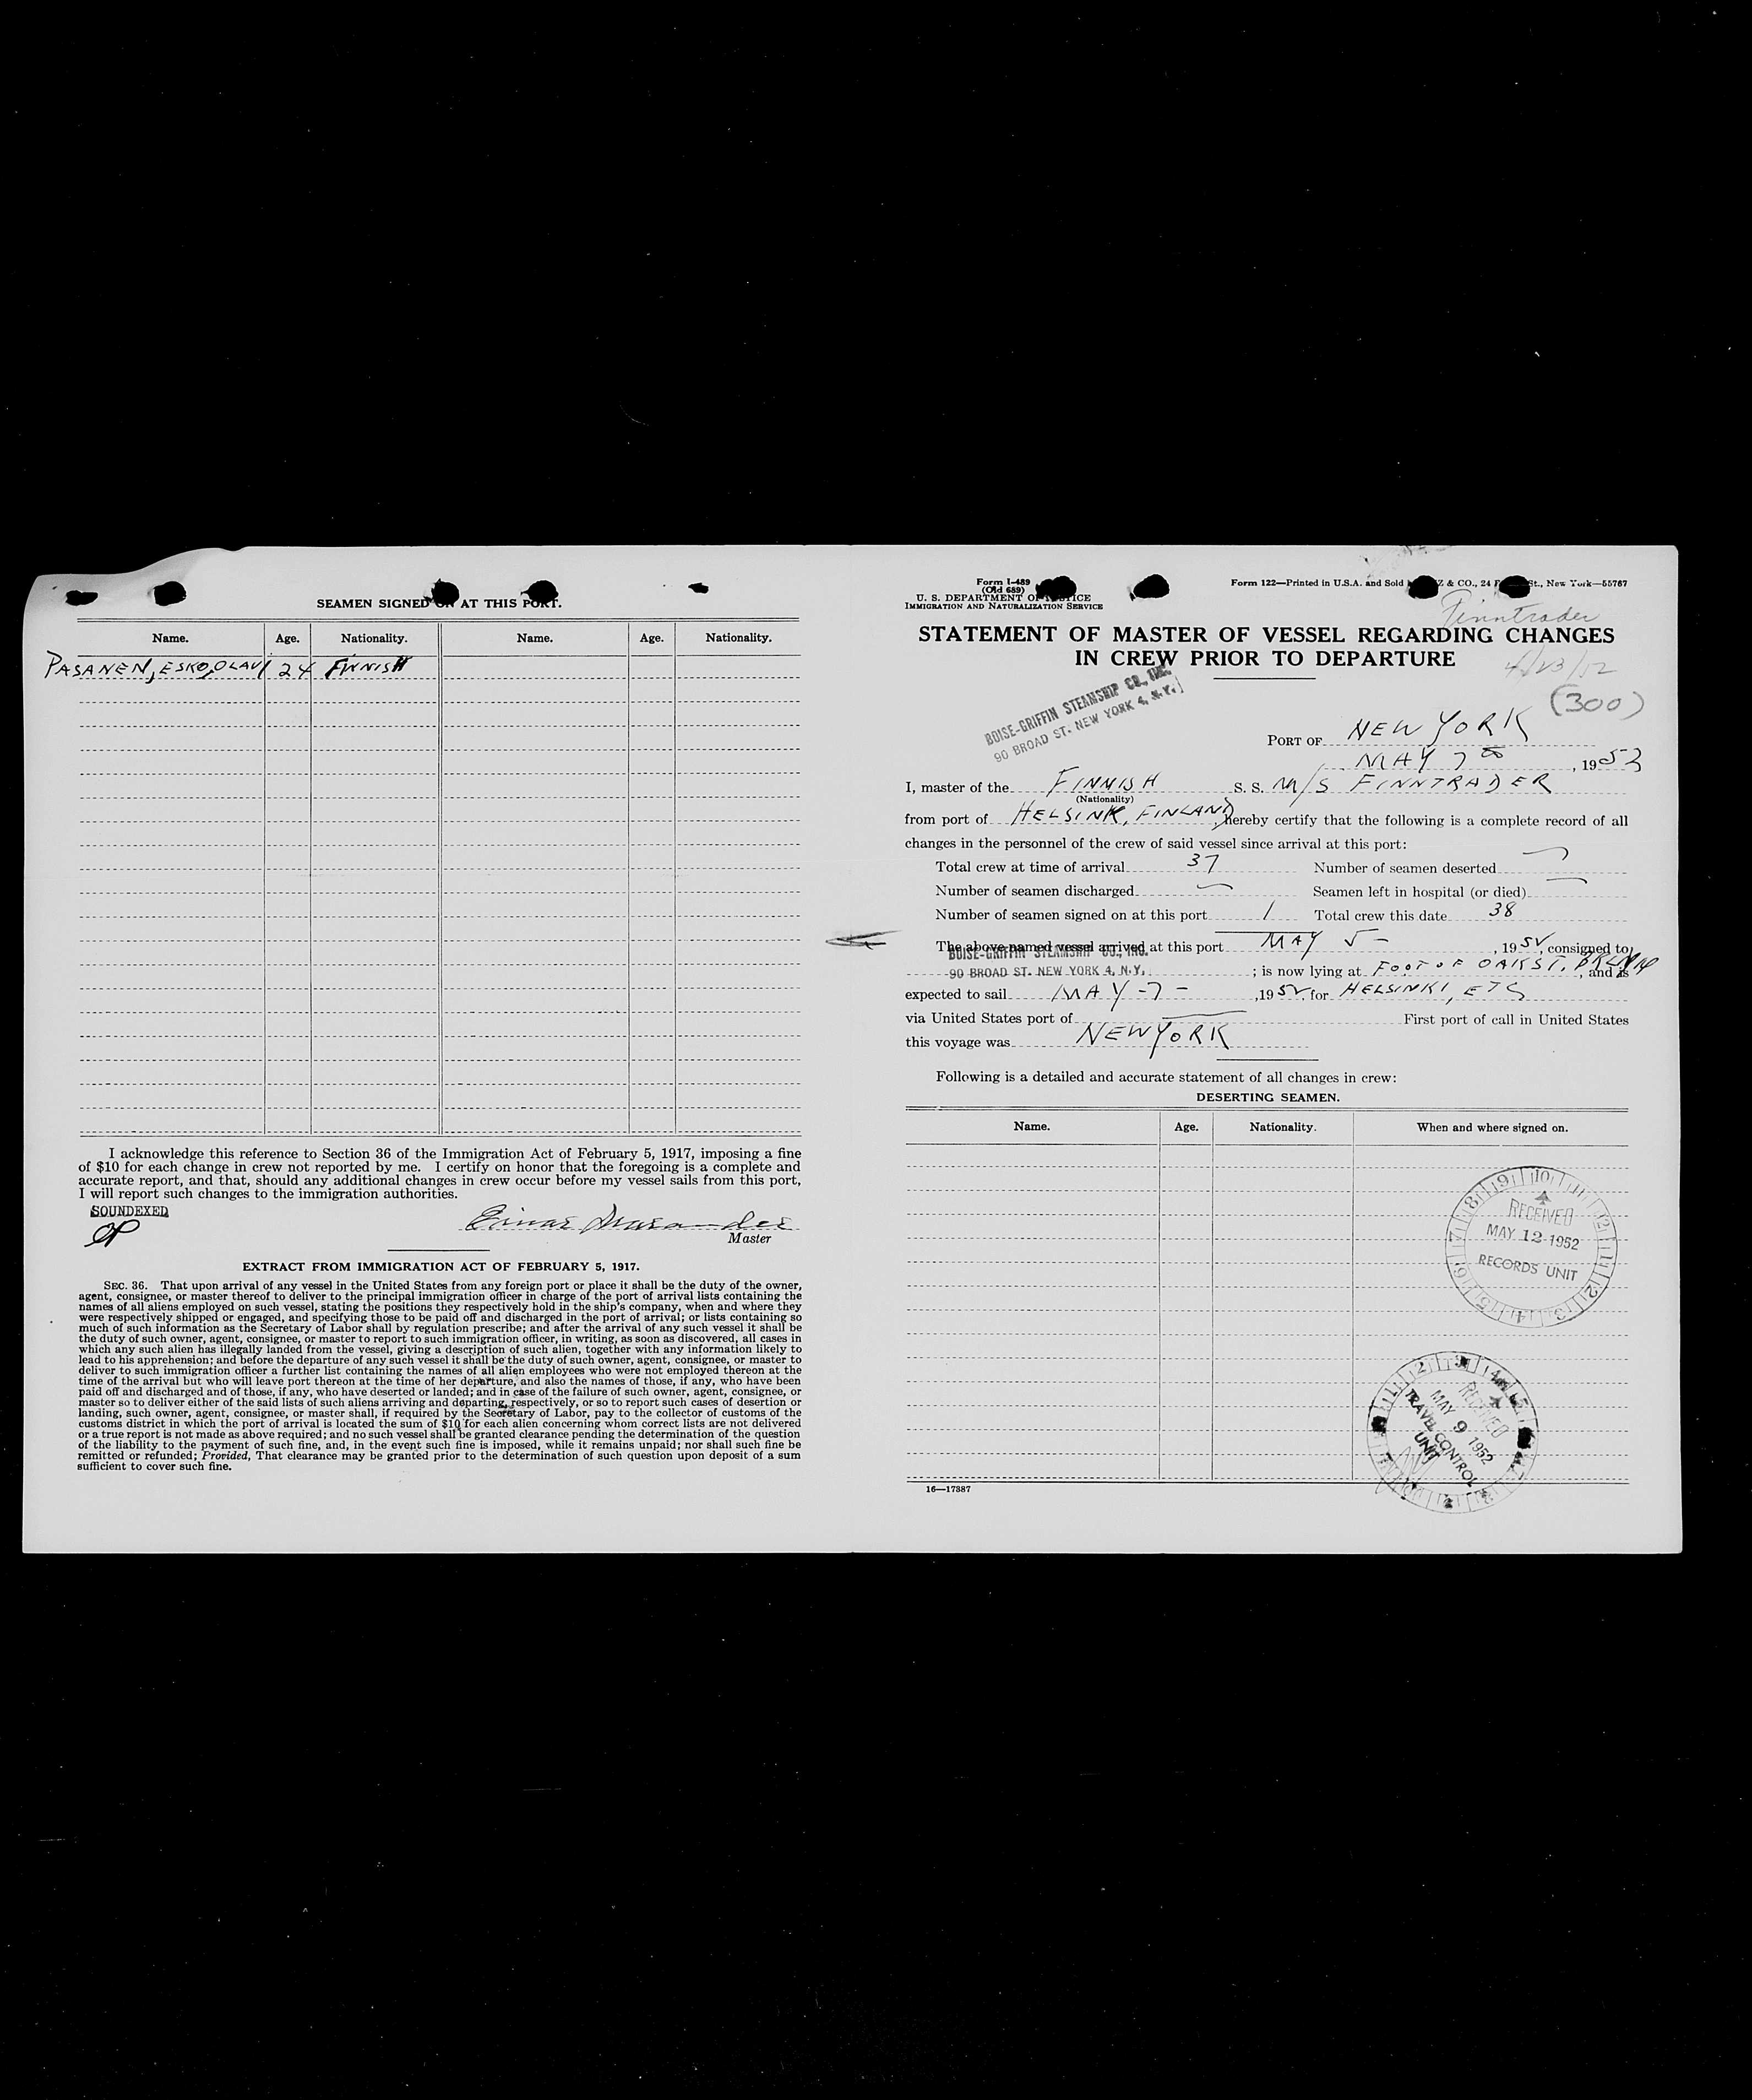 SEAMEN SIGNED ON AT THIS PORT.
Name. Age. Nationality. Name. Age. Nationality.
PASANEN, ESKO, OLAVI 24 FINNISH
I acknowledge this reference to Section 36 of the Immigration Act of February 5, 1917, imposing a fine
of $10 for each change in crew not reported by me. I certify on honor that the foregoing is a complete and
accurate report, and that, should any additional changes in crew occur before my vessel sails from this port,
I will report such changes to the immigration authorities.
SOUNDEXED
Einar
Master
EXTRACT FROM IMMIGRATION ACT OF FEBRUARY 5, 1917.
SEC. 36. That upon arrival of any vessel in the United States from any foreign port or place it shall be the duty of the owner,
agent, consignee, or master thereof to deliver to the principal immigration officer in charge of the port of arrival lists containing the
names of all aliens employed on such vessel, stating the positions they respectively hold in the ship's company, when and where they
were respectively shipped or engaged, and specifying those to be paid off and discharged in the port of arrival; or lists containing so
much of such information as the Secretary of Labor shall by regulation prescribe; and after the arrival of any such vessel it shall be
the duty of such owner, agent, consignee, or master to report to such immigration officer, in writing, as soon as discovered, all cases in
which any such alien has illegally landed from the vessel, giving a description of such alien, together with any information likely to
lead to his apprehension; and before the departure of any such vessel it shall be the duty of such owner, agent, consignee, or master to
deliver to such immigration officer a further list containing the names of all alien employees who were not employed thereon at the
time of the arrival but who will leave port thereon at the time of her departure, and also the names of those, if any, who have been
paid off and discharged and of those, if any, who have deserted or landed; and in case of the failure of such owner, agent, consignee, or
master so to deliver either of the said lists of such aliens arriving and departing, respectively, or so to report such cases of desertion or
landing, such owner, agent, consignee, or master shall, if required by the Secretary of Labor, pay to the collector of customs of the
customs district in which the port of arrival is located the sum of $10 for each alien concerning whom correct lists are not delivered
or a true report is not made as above required; and no such vessel shall be granted clearance pending the determination of the question
of the liability to the payment of such fine, and, in the event such fine is imposed, while it remains unpaid; nor shall such fine be
remitted or refunded; Provided, That clearance may be granted prior to the determination of such question upon deposit of a sum
sufficient to cover such fine.
Form I-489
(Old 689)
U. S. DEPARTMENT OF JUSTICE
IMMIGRATION AND NATURALIZATION SERVICE
Form 122—Printed in U.S.A. and Sold & CO., 24 St., New York—55767
Finntrader
STATEMENT OF MASTER OF VESSEL REGARDING CHANGES
IN CREW PRIOR TO DEPARTURE
(300)
BOISE-GRIFFIN STEAMSHIP CO., INC.
90 BROAD ST. NEW YORK 4, N.Y.
PORT OF NEW YORK
MAY 7, 1952
I, master of the FINNISH S. S. M/S FINNTRADER
(Nationality)
from port of HELSINKI, FINLAND, hereby certify that the following is a complete record of all
changes in the personnel of the crew of said vessel since arrival at this port:
Total crew at time of arrival 37 Number of seamen deserted
Number of seamen discharged Seamen left in hospital (or died)
Number of seamen signed on at this port 1 Total crew this date 38
The above-named vessel arrived at this port MAY 5 - , 1952, consigned to
BOISE-GRIFFIN STEAMSHIP CO., INC.
90 BROAD ST. NEW YORK 4, N.Y. ; is now lying at FOOT OF OAK ST. BKLYN, and is
expected to sail MAY - 7 - , 1952, for HELSINKI, ETC
via United States port of First port of call in United States
this voyage was NEW YORK
Following is a detailed and accurate statement of all changes in crew:
DESERTING SEAMEN.
Name. Age. Nationality. When and where signed on.
RECEIVED
MAY 12 1952
RECORDS UNIT
RECEIVED
MAY 9 1952
TRAVEL CONTROL
UNIT
16—17387